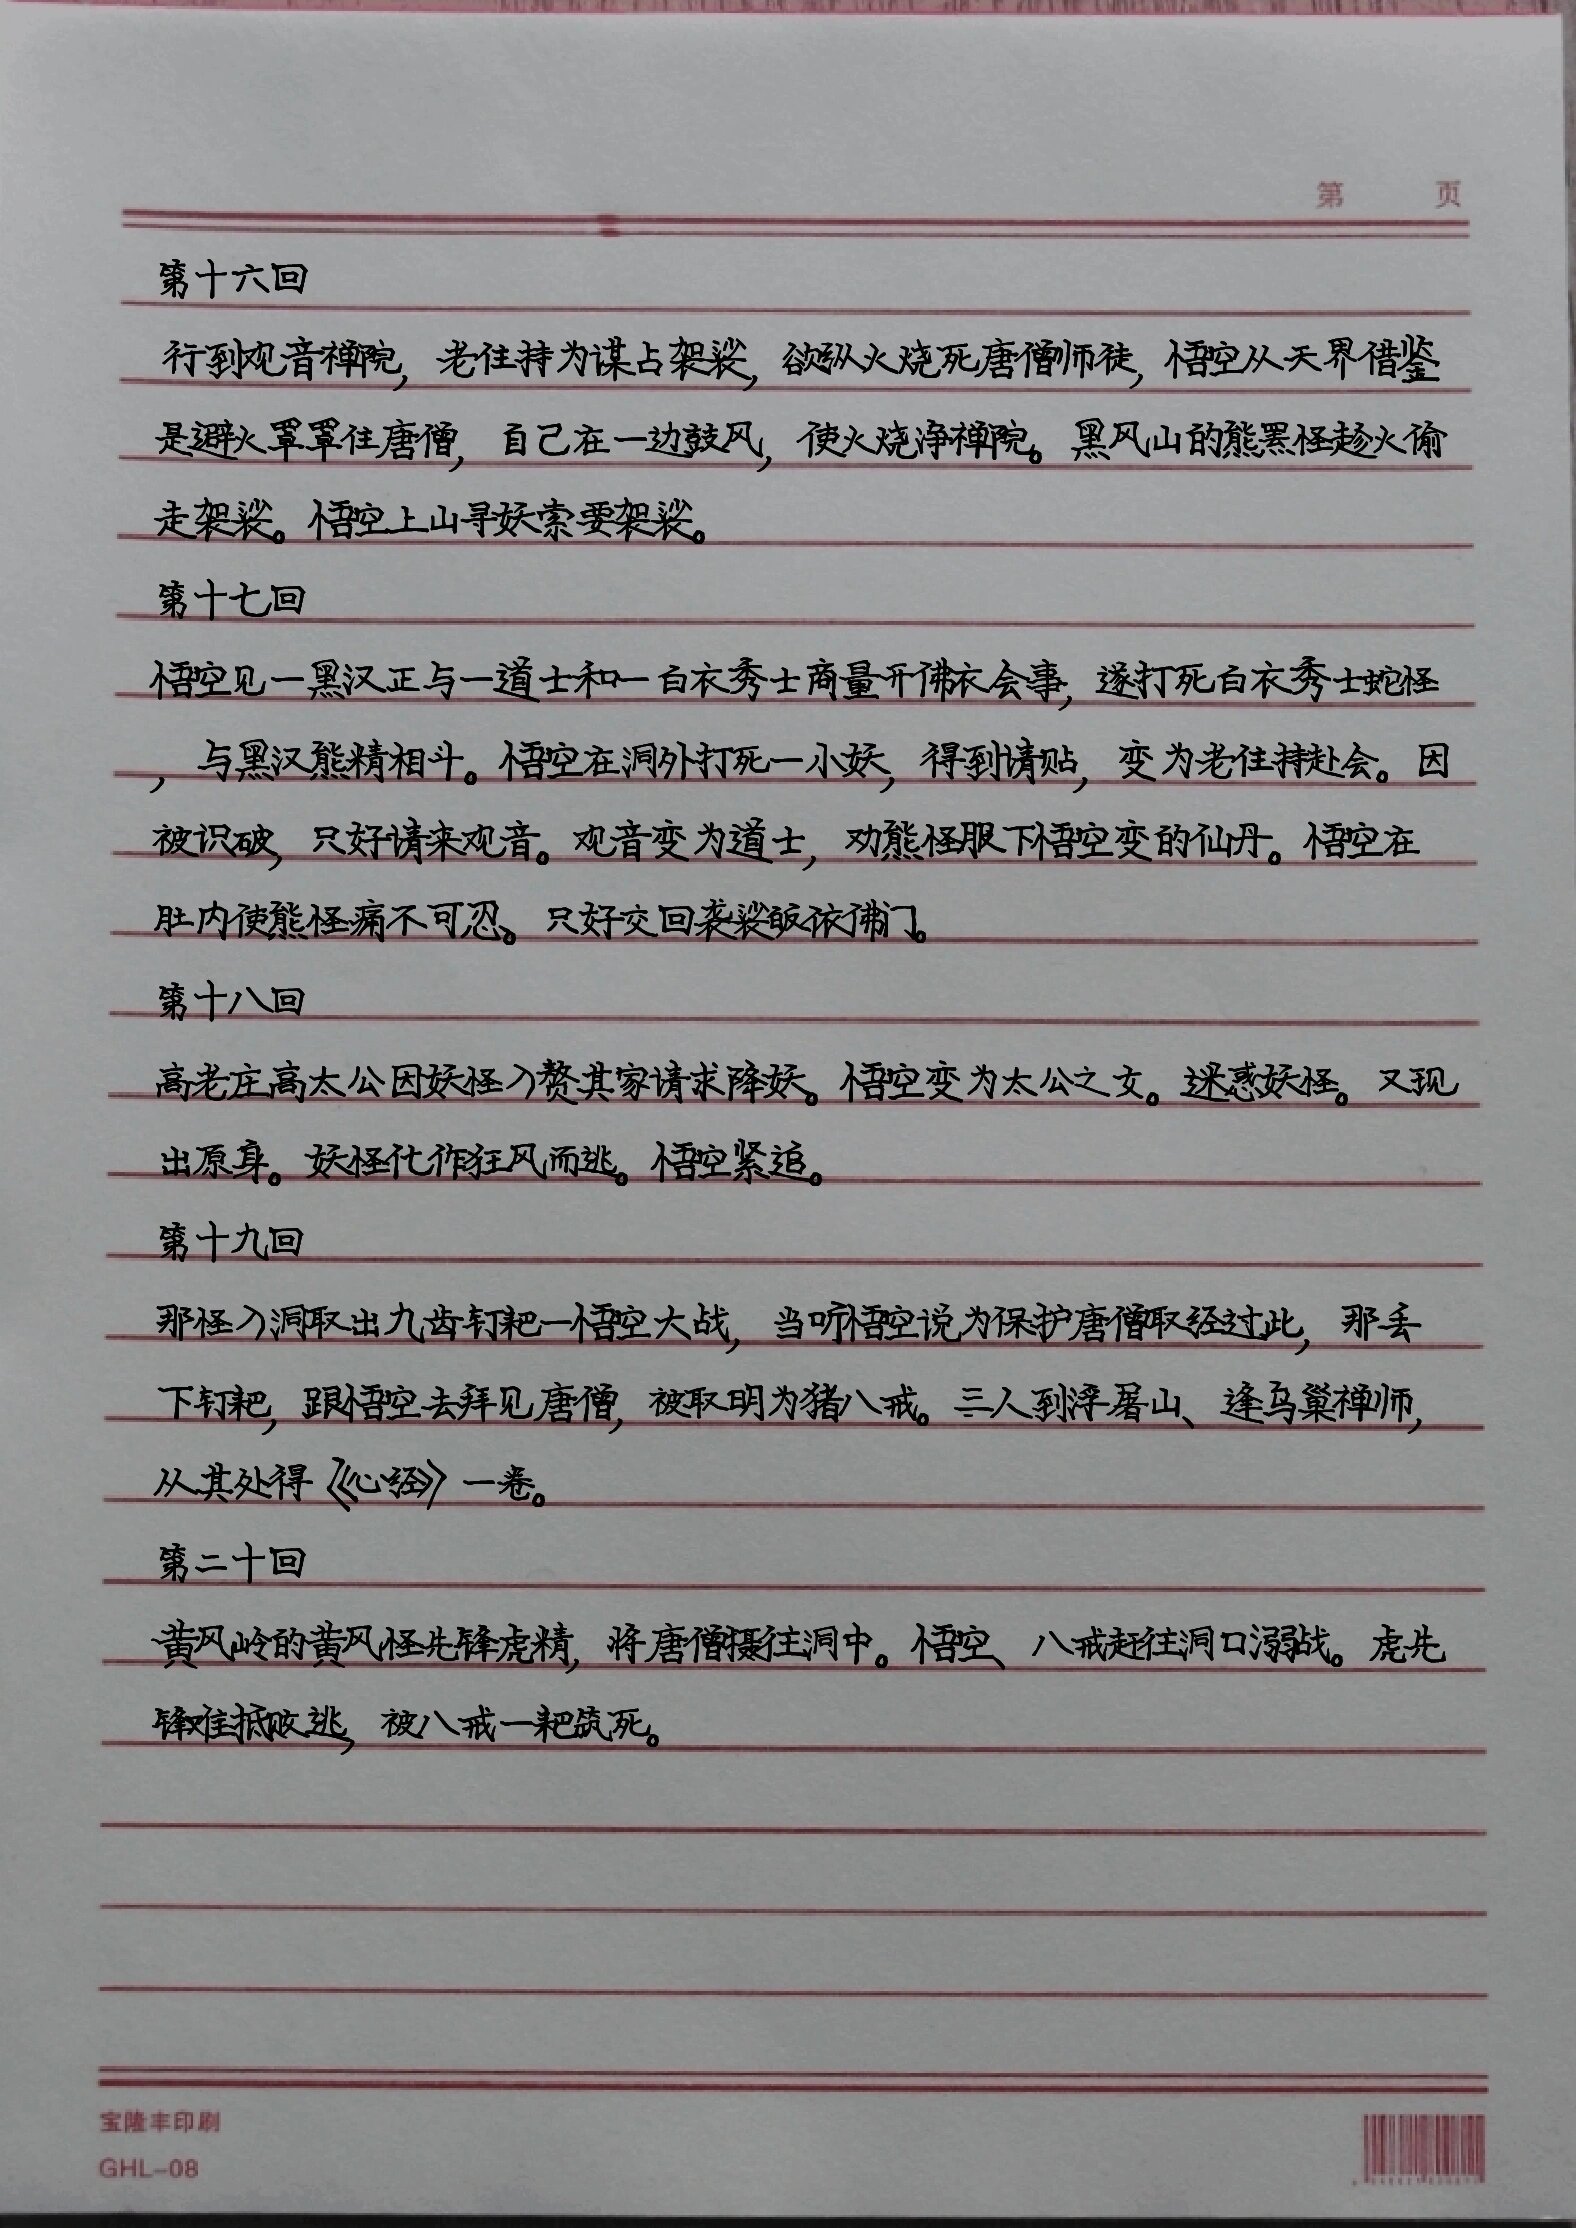 第 页
第十六回
行到观音禅院，老住持为谋占袈裟，欲纵火烧死唐僧师徒，悟空从天界借鉴
是避火罩罩住唐僧，自己在一边鼓风，使火烧净禅院。黑风山的熊罴怪趁火偷
走袈裟。悟空上山寻妖索要袈裟。
第十七回
悟空见一黑汉正与一道士和一白衣秀士商量开佛衣会事，遂打死白衣秀士蛇怪
，与黑汉熊精相斗。悟空在洞外打死一小妖，得到请贴，变为老住持赴会。因
被识破，只好请来观音。观音变为道士，劝熊怪服下悟空变的仙丹。悟空在
肚内使熊怪痛不可忍。只好交回袭裟皈依佛门。
第十八回
高老庄高太公因妖怪入赘其家请求降妖。悟空变为太公之女。迷惑妖怪。又现
出原身。妖怪化作狂风而逃。悟空紧追。
第十九回
那怪入洞取出九齿钉耙一悟空大战，当听悟空说为保护唐僧取经过此，那丢
下钉耙，跟悟空去拜见唐僧，被取明为猪八戒。三人到浮屠山、逢乌巢禅师，
从其处得《心经》一卷。
第二十回
黄风岭的黄风怪先锋虎精，将唐僧摄往洞中。悟空、八戒赶往洞口溺战。虎先
锋难抵败逃，被八戒一耙筑死。
宝隆丰印刷
GHL-08